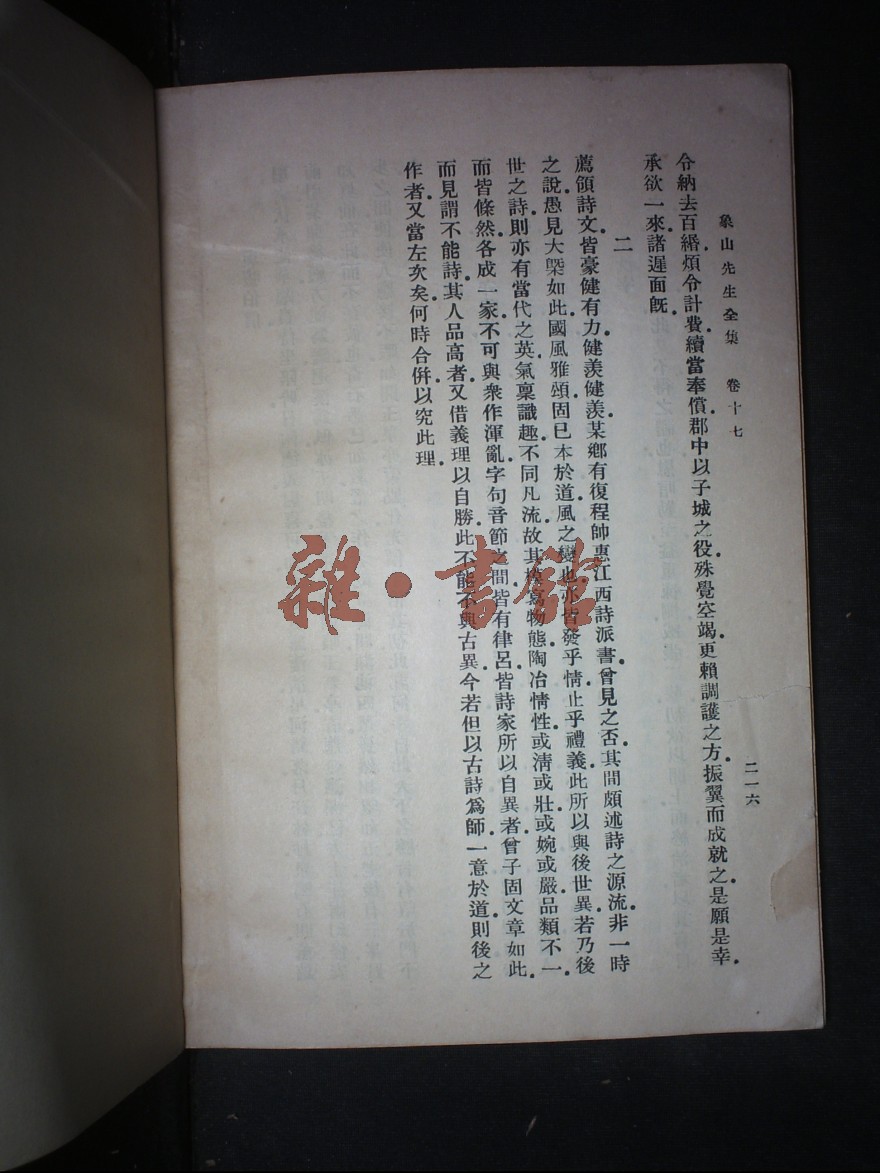 象山先生全集　卷十七
二一六
令納去百緡.煩令計費.續當奉償.郡中以子城之役.殊覺空竭.更賴調護之方.振翼而成就之.是願是幸.
承欲一來.諸遲面旣.
二
薦領詩文.皆豪健有力.健羨健羨.某鄉有復程帥惠江西詩派書.曾見之否.其間頗述詩之源流.非一時
之說.愚見大槩如此.國風雅頌.固已本於道.風之變也.亦皆發乎情.止乎禮義.此所以與後世異.若乃後
世之詩.則亦有當代之英.氣稟識趣.不同凡流.故其模寫物態.陶冶情性.或淸或壯.或婉或嚴.品類不一.
而皆條然各成一家.不可與衆作渾亂.字句音節之間.皆有律呂.皆詩家所以自異者.曾子固文章如此.
而見謂不能詩.其人品高者.又借義理以自勝.此不能不與古異.今若但以古詩爲師.一意於道.則後之
作者.又當左次矣.何時合倂.以究此理.
雜·書館